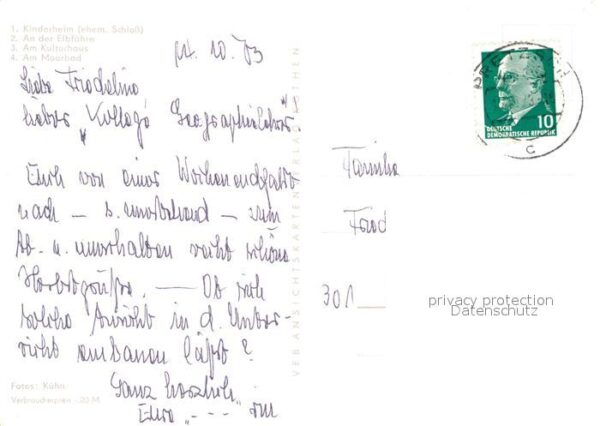 1. Kinderheim (ehem. Schloß)
2. An der Elbfähre
3. Am Kulturhaus
4. Am Moorbad
10. 73
Liebe
lieber Kollege Geographielehrer
Euch von einer Wochenendfahrt
nach – s. umstehend – zum
Ab- u. umschalten recht schöne
Herbstgrüße. — Ob sich
solche Ansicht in d. Unter-
richt einbauen läßt?
Ganz herzlich
Eure
Fotos: Kühn
Verbraucherpreis -,20 M
VEB ANSICHTSKARTENVERLAG KÖTHEN
10
DEUTSCHE
DEMOKRATISCHE REPUBLIK
C
Familie
Fried
301
privacy protection
Datenschutz